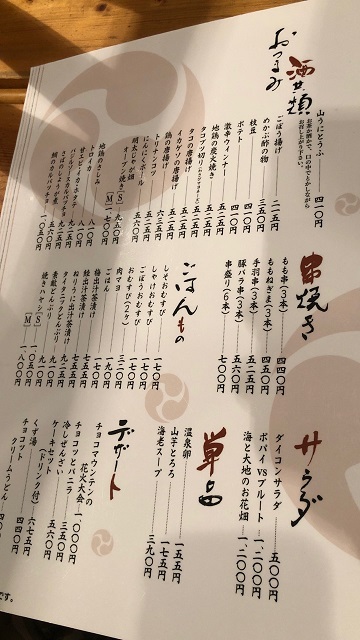 おつまみ
酒の類
山うにとうふ 四一〇円
お茶か酒かで、口の中でとかしながら
お召し上がり下さい。
ごぼう揚げ 二一五円
めかぶ酢の物 三五〇円
枝豆
ポテト 四一〇円
激辛ウインナー
地鶏の炭火焼き 五二五円
タコブツ切り
タコの唐揚げ 五二五円
イカゲソの唐揚げ 五二五円
鶏の唐揚げ 五二五円
トリナンコツ 六三五円
にんにくボール 五二五円
明太じゃが餅
オーブン焼き[S] 九五〇円
[M] 一七〇〇円
地鶏のさしみ
トロイカ 八一〇円
甘エビ
鯛のカルパッチョ 一、〇五〇円
串焼き
もも串(3本) 四四〇円
ももねぎま(3本) 四五〇円
手羽串(3本) 五二五円
豚バラ串(3本) 五六〇円
串盛り(6本) 七〇〇円
ごはんもの
しそおむすび 一七〇円
しゃけおむすび 一七〇円
ごぼうおむすび 一七〇円
おむすび(2ヶ)
肉マヨ 三二〇円
ごはん 一九〇円
梅出汁茶漬け
鮭出汁茶漬け 七五五円
ねりうに出汁茶漬け 七五五円
タイタニックどんぶり 九二五円
素敵どんぶり 九一〇円
焼きハヤシ[S] 一、〇五〇円
[M] 一、八〇〇円
サラダ
ダイコンサラダ 五〇〇円
ポパイVSブルート 一、二〇〇円
海と大地のお花畑 一、二〇〇円
単品
温泉卵 一五五円
山芋とろろ 一七五円
海老スープ 三九〇円
デザート
チョコマウンテンの
花火大会 一、〇〇〇円
チョコッとバニラ 三五〇円
冷しぜんざい 五六〇円
ケーキセット
(ドリンク付) 六七五円
くず湯 四四〇円
チョコット
クリームうどん
です。